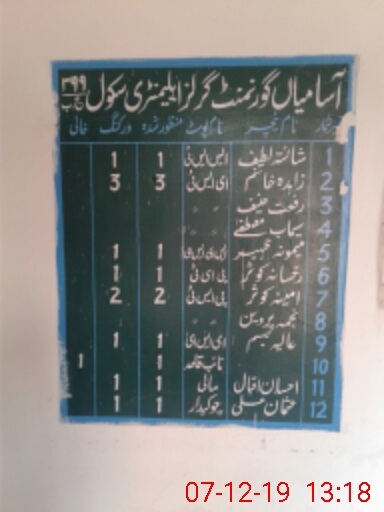 آسامیاں گورنمنٹ گرلز ایلیمنٹری سکول ۳۹۹ ج ب
نمبر شمار نام ٹیچر نام پوسٹ منظور شدہ ورکنگ خالی
1 شائستہ لطیف ایس ایس ٹی 1 1
2 زاہدہ خانم ای ایس ٹی 3 3
3 رفعت حنیف " "
4 سیماب مصطفےٰ " "
5 میمونہ ظہیر 1 1
6 رخسانہ کوثر پی ای ٹی 1 1
7 امینہ کوثر پی ایس ٹی 2 2
8 نجمہ پروین " "
9 عالیہ تبسم ای ایس ای 1 1
10 نائب قاصد 1 1
11 احسان اقبال مالی 1 1
12 عثمان علی چوکیدار 1 1
07-12-19 13:18